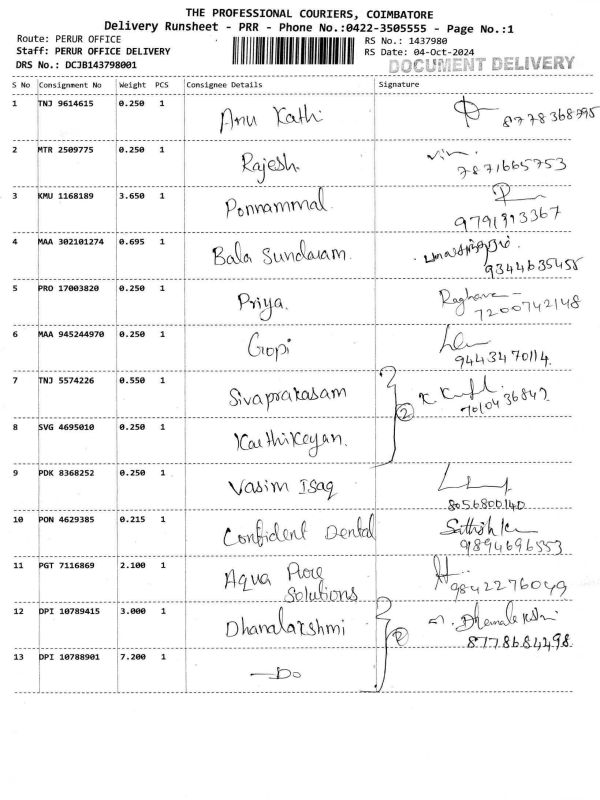 THE PROFESSIONAL COURIERS, COIMBATORE
Delivery Runsheet - PRR - Phone No.:0422-3505555 - Page No.:1
Route: PERUR OFFICE
RS No.: 1437980
Staff: PERUR OFFICE DELIVERY
RS Date: 04-Oct-2024
DRS No.: DCJB143798001
DOCUMENT DELIVERY
S No Consignment No Weight PCS Consignee Details Signature
1 TNJ 9614615 0.250 1 Anu Kathi
8778368995
2 MTR 2509775 0.250 1 Rajesh
7871665753
3 KMU 1168189 3.650 1 Ponnammal
9791313367
4 MAA 302101274 0.695 1 Bala Sundaram.
9344635455
5 PRO 17003820 0.250 1 Priya. Raghava
7200742148
6 MAA 945244970 0.250 1 Gopi
9443470114
7 TNJ 5574226 0.550 1 Sivaprakasam
2
7010436842
8 SVG 4695010 0.250 1 Karthikeyan.
9 PDK 8368252 0.250 1 Vasim Isaq
8056800140
10 PON 4629385 0.215 1 Confident Dental Sathish
9894696553
11 PGT 7116869 2.100 1 Aqua Pure
Solutions
9842276049
12 DPI 10789415 3.000 1 Dhanalakshmi
2
8778684498
13 DPI 10788901 7.200 1 Do